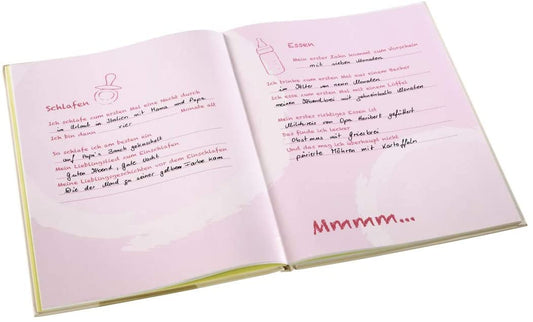 Schlafen
Ich schlafe zum ersten Mal eine Nacht durch
im Urlaub in Italien mit Mama und Papa
Ich bin dann vier Monate alt
So schlafe ich am besten ein
auf Papa's Bauch gekuschelt
Mein Lieblingslied zum Einschlafen
Guten Abend, gute Nacht
Meine Lieblingsgeschichten vor dem Einschlafen
Wie der Mond zu seiner gelben Farbe kam
Essen
Mein erster Zahn kommt zum Vorschein
mit sieben Monaten
Ich trinke zum ersten Mal aus einem Becher
im Alter von neun Monaten
Ich esse zum ersten Mal mit einem Löffel
meinen Abendbrei mit
Mein erstes richtiges Essen ist
Milchreis von Opa Heribert gefüttert
Das finde ich lecker
Obstmus mit Griesbrei
Und das mag ich überhaupt nicht
pürierte Möhren mit Kartoffeln
Mmmm...